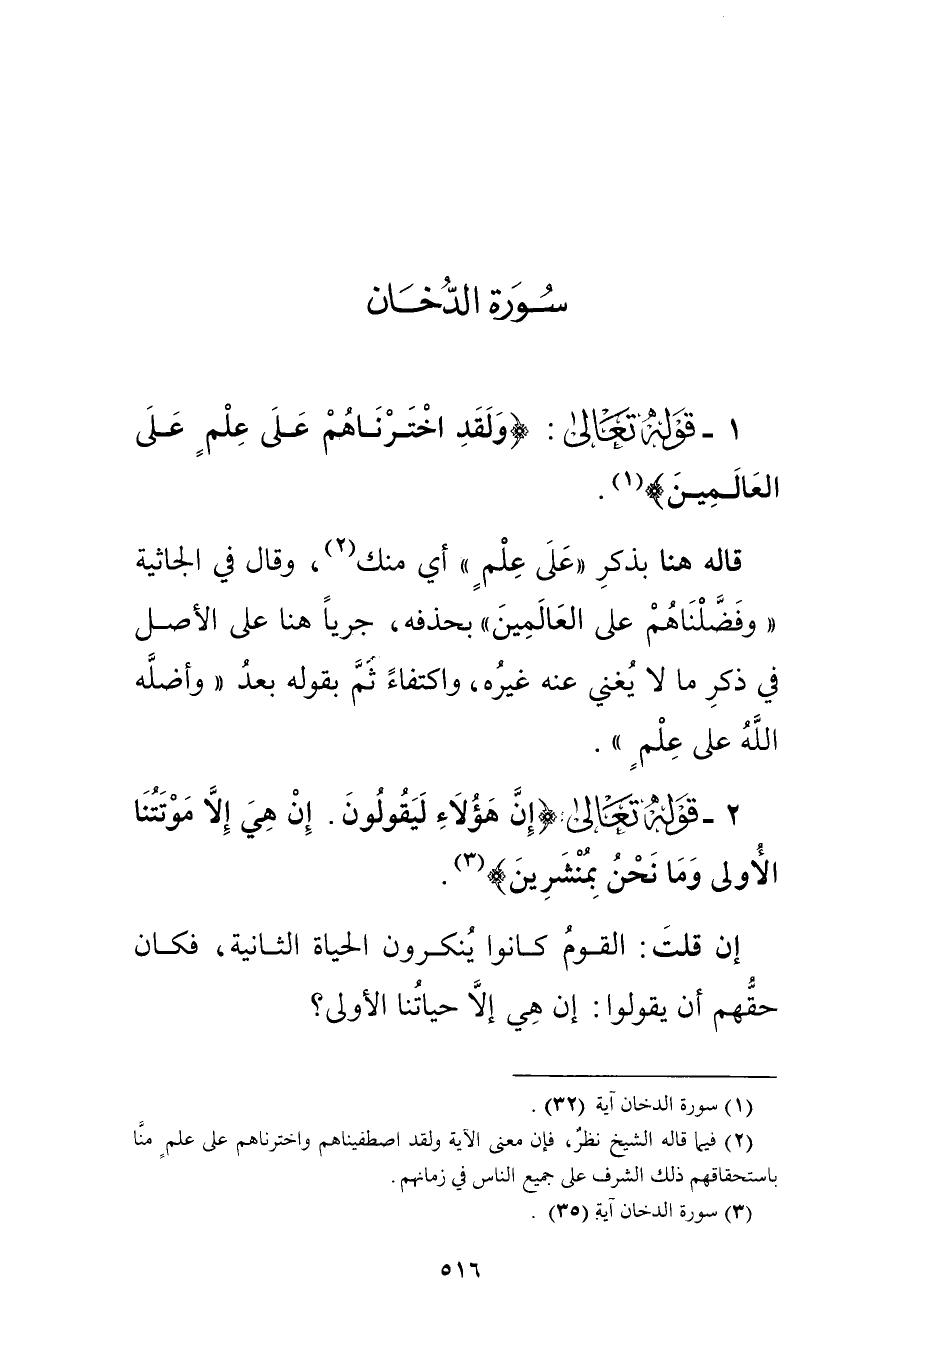 سُورَة الدُّخَان
١ - قَوْلُهُ تَعَالَىٰ : ﴿وَلَقَدِ اخْتَرْنَاهُمْ عَلَى عِلْمٍ عَلَى
العَالَمِينَ﴾(١) .
قاله هنا بذكرِ «عَلَى عِلْمٍ» أي منك(٢)، وقال في الجاثية
« وفَضَّلْنَاهُمْ على العَالَمِينَ» بحذفه، جرياً هنا على الأصل
في ذكرِ ما لا يُغني عنه غيرُه، واكتفاءً ثَمَّ بقوله بعدُ « وأضلَّه
اللَّهُ على عِلْمٍ » .
٢ - قَوْلُهُ تَعَالَىٰ : ﴿إِنَّ هَؤُلَاءِ لَيَقُولُونَ . إِنْ هِيَ إِلَّا مَوْتَتُنَا
الأُولى وَمَا نَحْنُ بِمُنْشَرِينَ﴾(٣) .
إن قلتَ : القومُ كانوا يُنكرون الحياة الثانية، فكان
حقُّهم أن يقولوا : إن هِي إلَّا حياتُنا الأولى؟
(١) سورة الدخان آية (٣٢) .
(٢) فيما قاله الشيخ نظرٌ، فإن معنى الآية ولقد اصطفيناهم واخترناهم على علمٍ منَّا
باستحقاقهم ذلك الشرف على جميع الناس في زمانهم .
(٣) سورة الدخان آية (٣٥) .
٥١٦